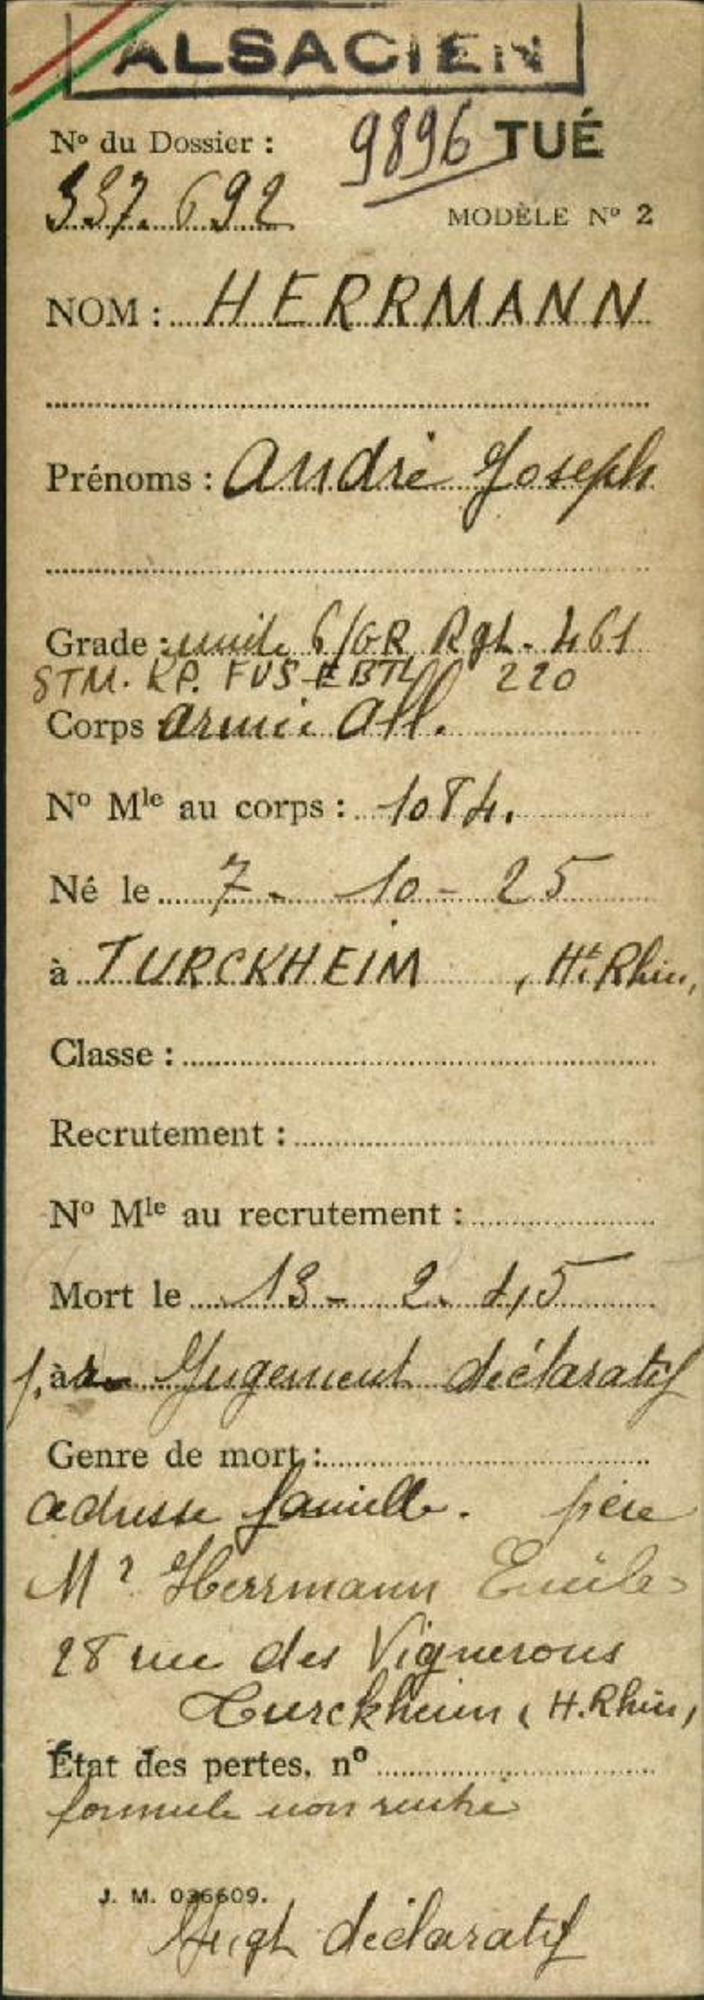 ALSACIEN
N° du Dossier : 9896 TUÉ
337.692
MODÈLE N° 2
NOM : HERRMANN
Prénoms : André Joseph
Grade : unité 6/GR Rgt. 461
STM. KP. FUS BTL 220
Corps armée All.
N° Mle au corps : 1084.
Né le 7 - 10 - 25
à TURCKHEIM , Ht Rhin,
Classe :
Recrutement :
N° Mle au recrutement :
Mort le 13 - 2. 45
à par Jugement déclaratif
Genre de mort :
adresse famille. père
Mr Herrmann Emile
28 rue des Vignerons
Turckheim ( H. Rhin)
État des pertes, n°
formule non rentré
J. M. 036609.
Jugt déclaratif